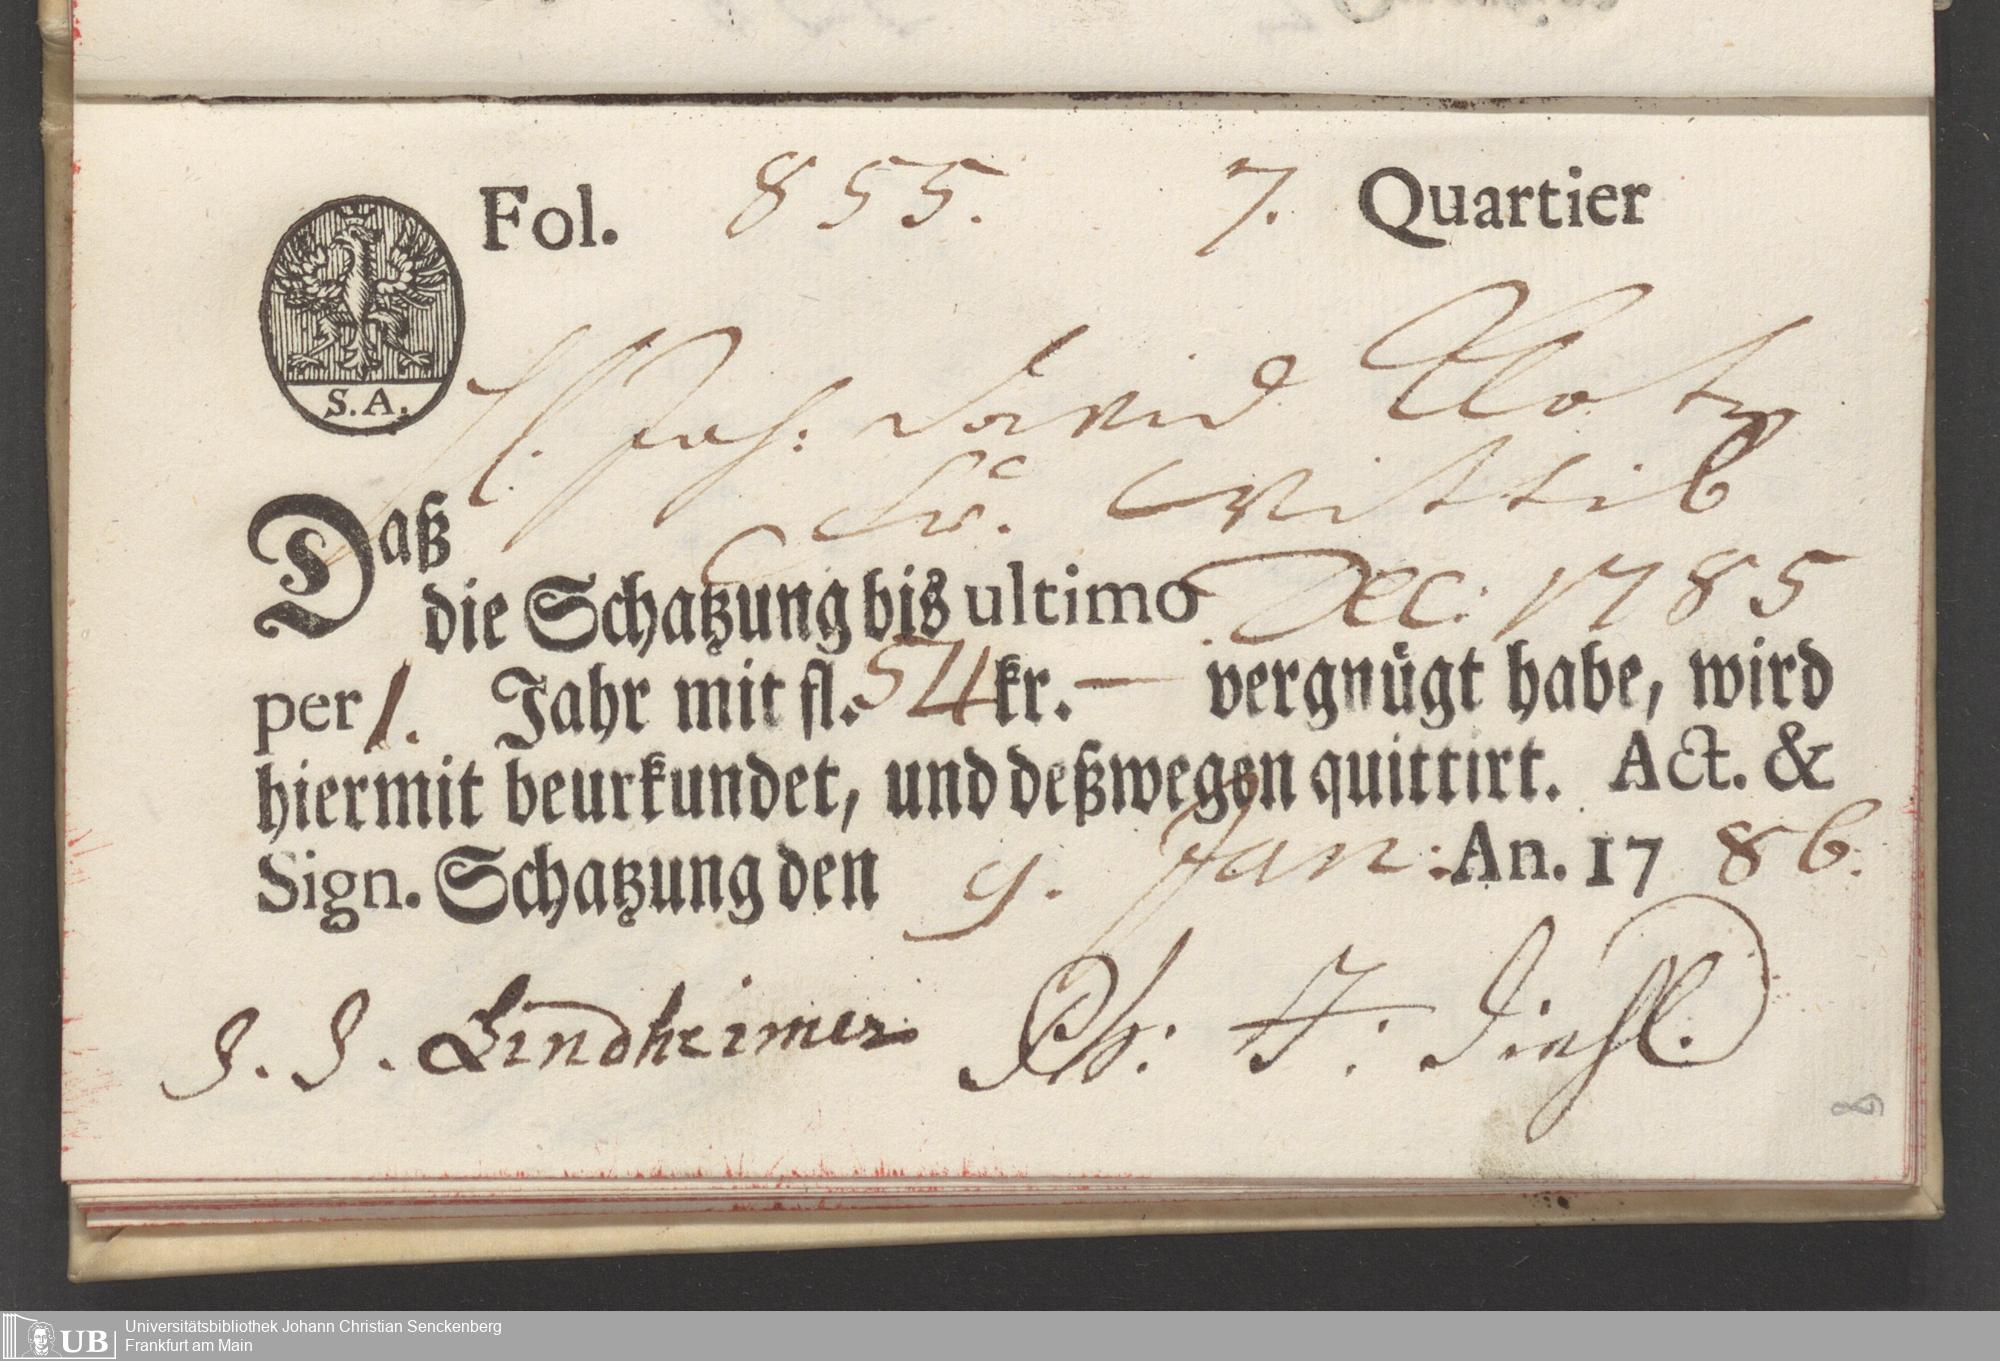 Fol. 855. 7. Quartier
S. A.
H. Joh: David Clotz
Sr. Wittib
Daß
die Schatzung bis ultimo Dec: 1785
per 1. Jahr mit fl. 54 kr. — vergnügt habe, wird
hiermit beurkundet, und deßwegen quittirt. Act. &
Sign. Schatzung den 9. Jan: An. 1786.
J. J. Lindheimer Ph: F: Diehl.
8
UB
Universitätsbibliothek Johann Christian Senckenberg
Frankfurt am Main